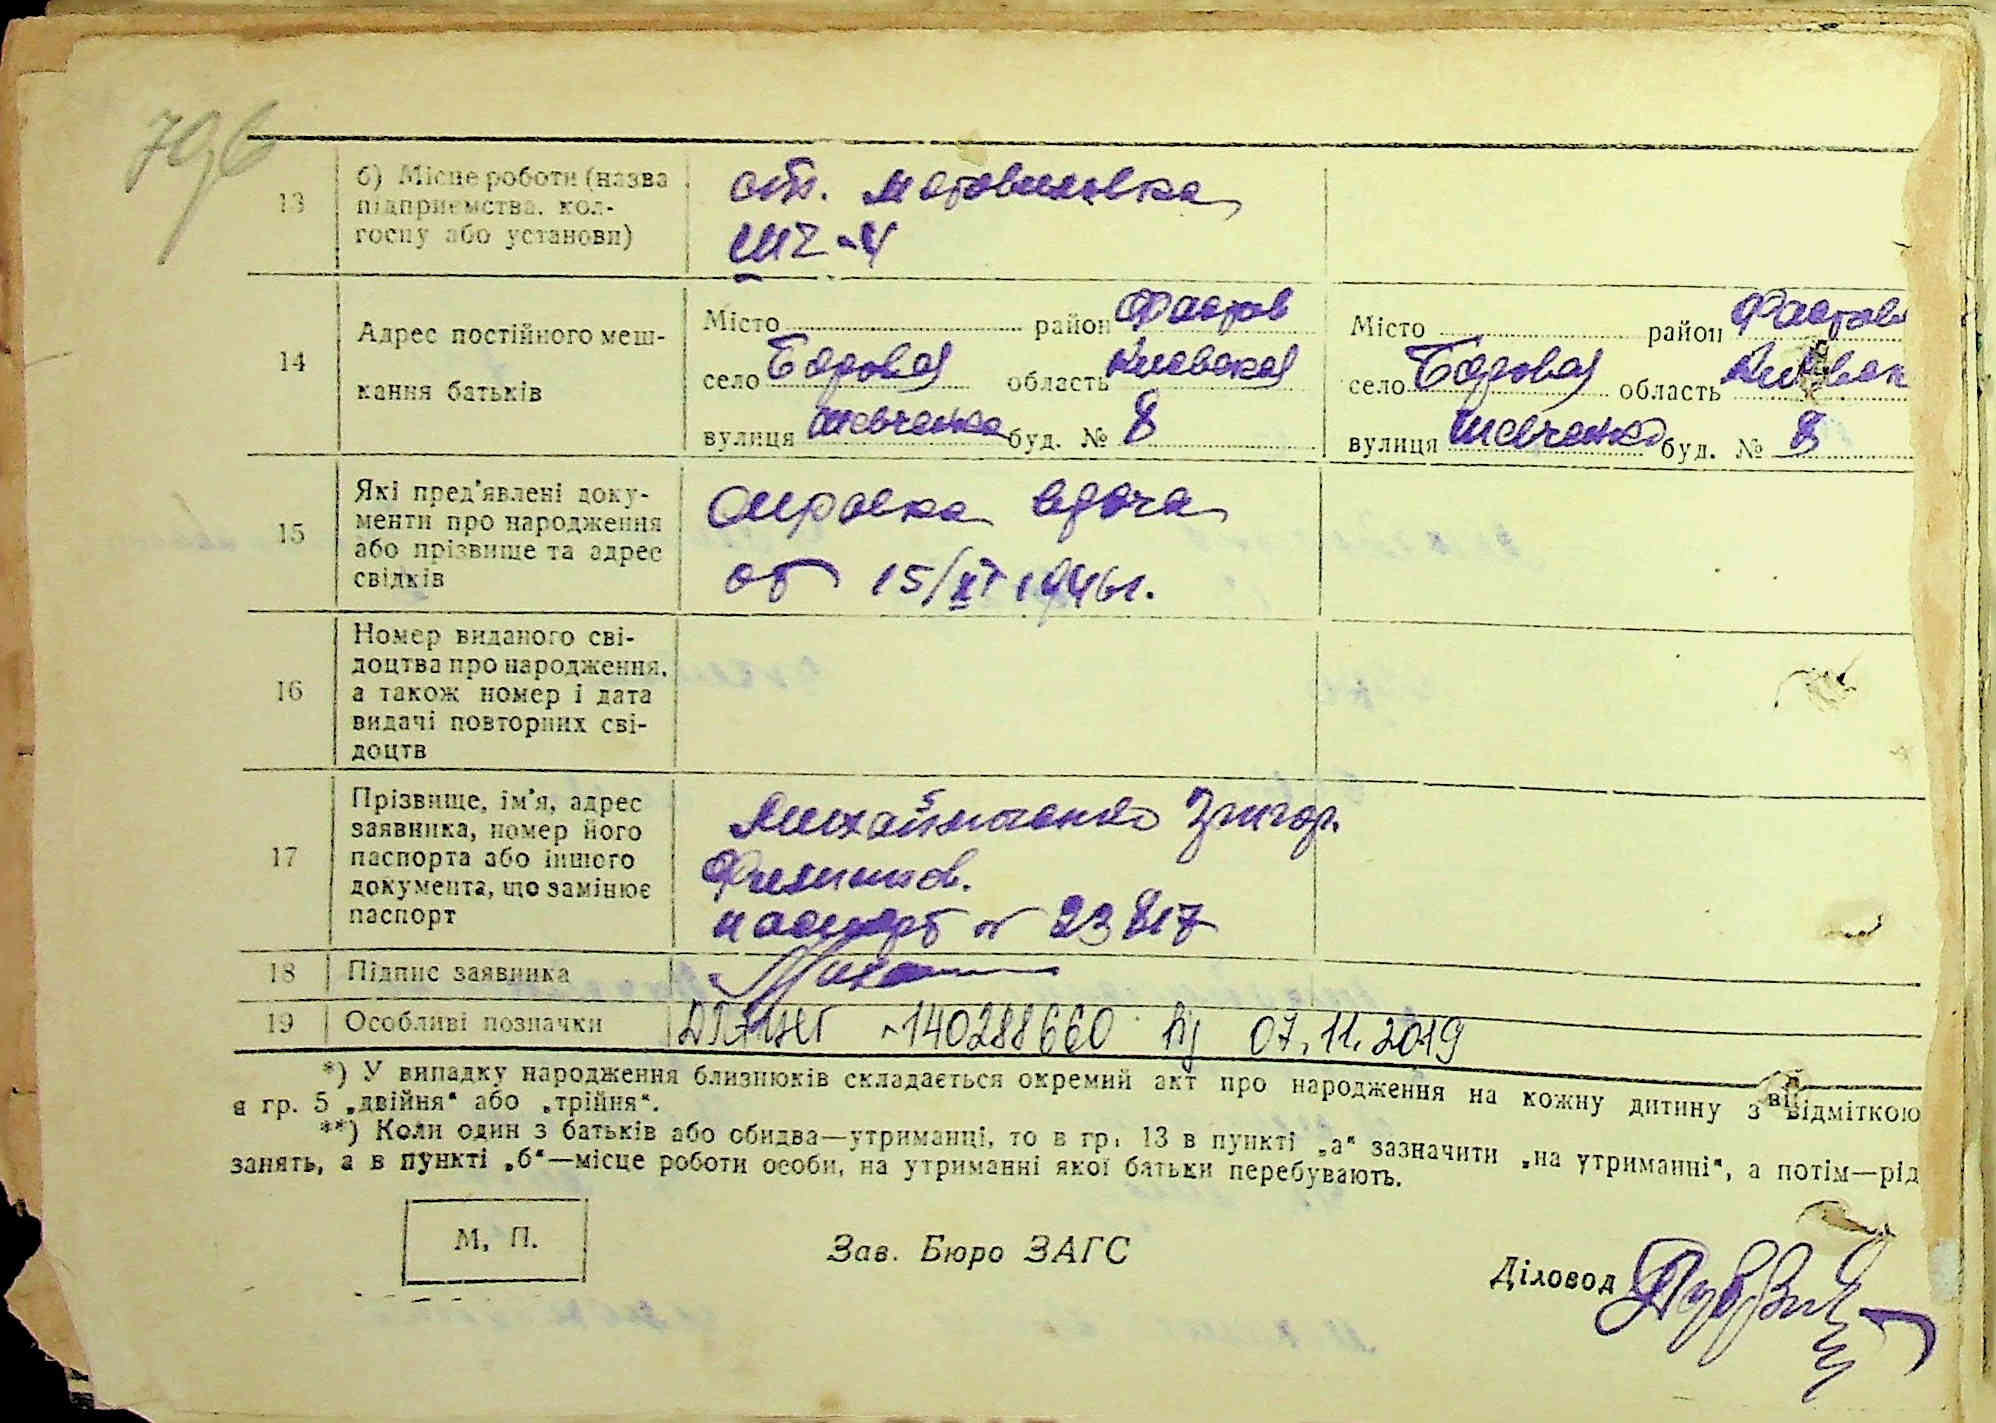 796
13 б) Місце роботи (назва
підприємства, кол-
госпу або установи)
ст. Мотовиловка
ШЧ-4
14 Адрес постійного меш-
кання батьків
Місто район Фастов
село Боровая область Киевская
вулиця Шевченко буд. № 8
Місто район Фастов
село Боровая область Киевск
вулиця Шевченко буд. № 8
15 Які пред'явлені доку-
менти про народження
або прізвище та адрес
свідків
Справка врача
от 15/XI 1946 г.
16 Номер виданого сві-
доцтва про народження,
а також номер і дата
видачі повторних сві-
доцтв
17 Прізвище, ім'я, адрес
заявника, номер його
паспорта або іншого
документа, що замінює
паспорт
Михайличенко Григор.
Филиппов.
паспорт № 23817
18 Підпис заявника
19 Особливі позначки
140288660 07.11.2019
*) У випадку народження близнюків складається окремий акт про народження на кожну дитину з відміткою
в гр. 5 „двійня“ або „трійня“.
**) Коли один з батьків або обидва—утриманці, то в гр. 13 в пункті „а“ зазначити „на утриманні“, а потім—рід
занять, а в пункті „б“—місце роботи особи, на утриманні якої батьки перебувають.
М. П.
Зав. Бюро ЗАГС
Діловод